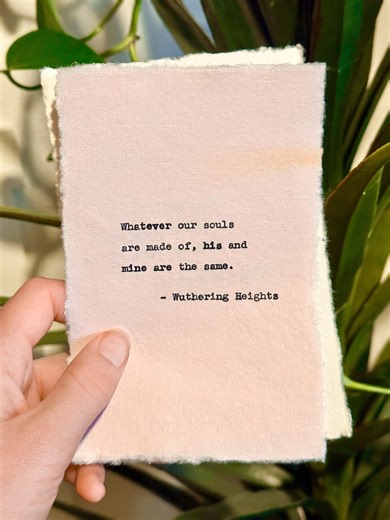 Whatever our souls
are made of, his and
mine are the same.
- Wuthering Heights